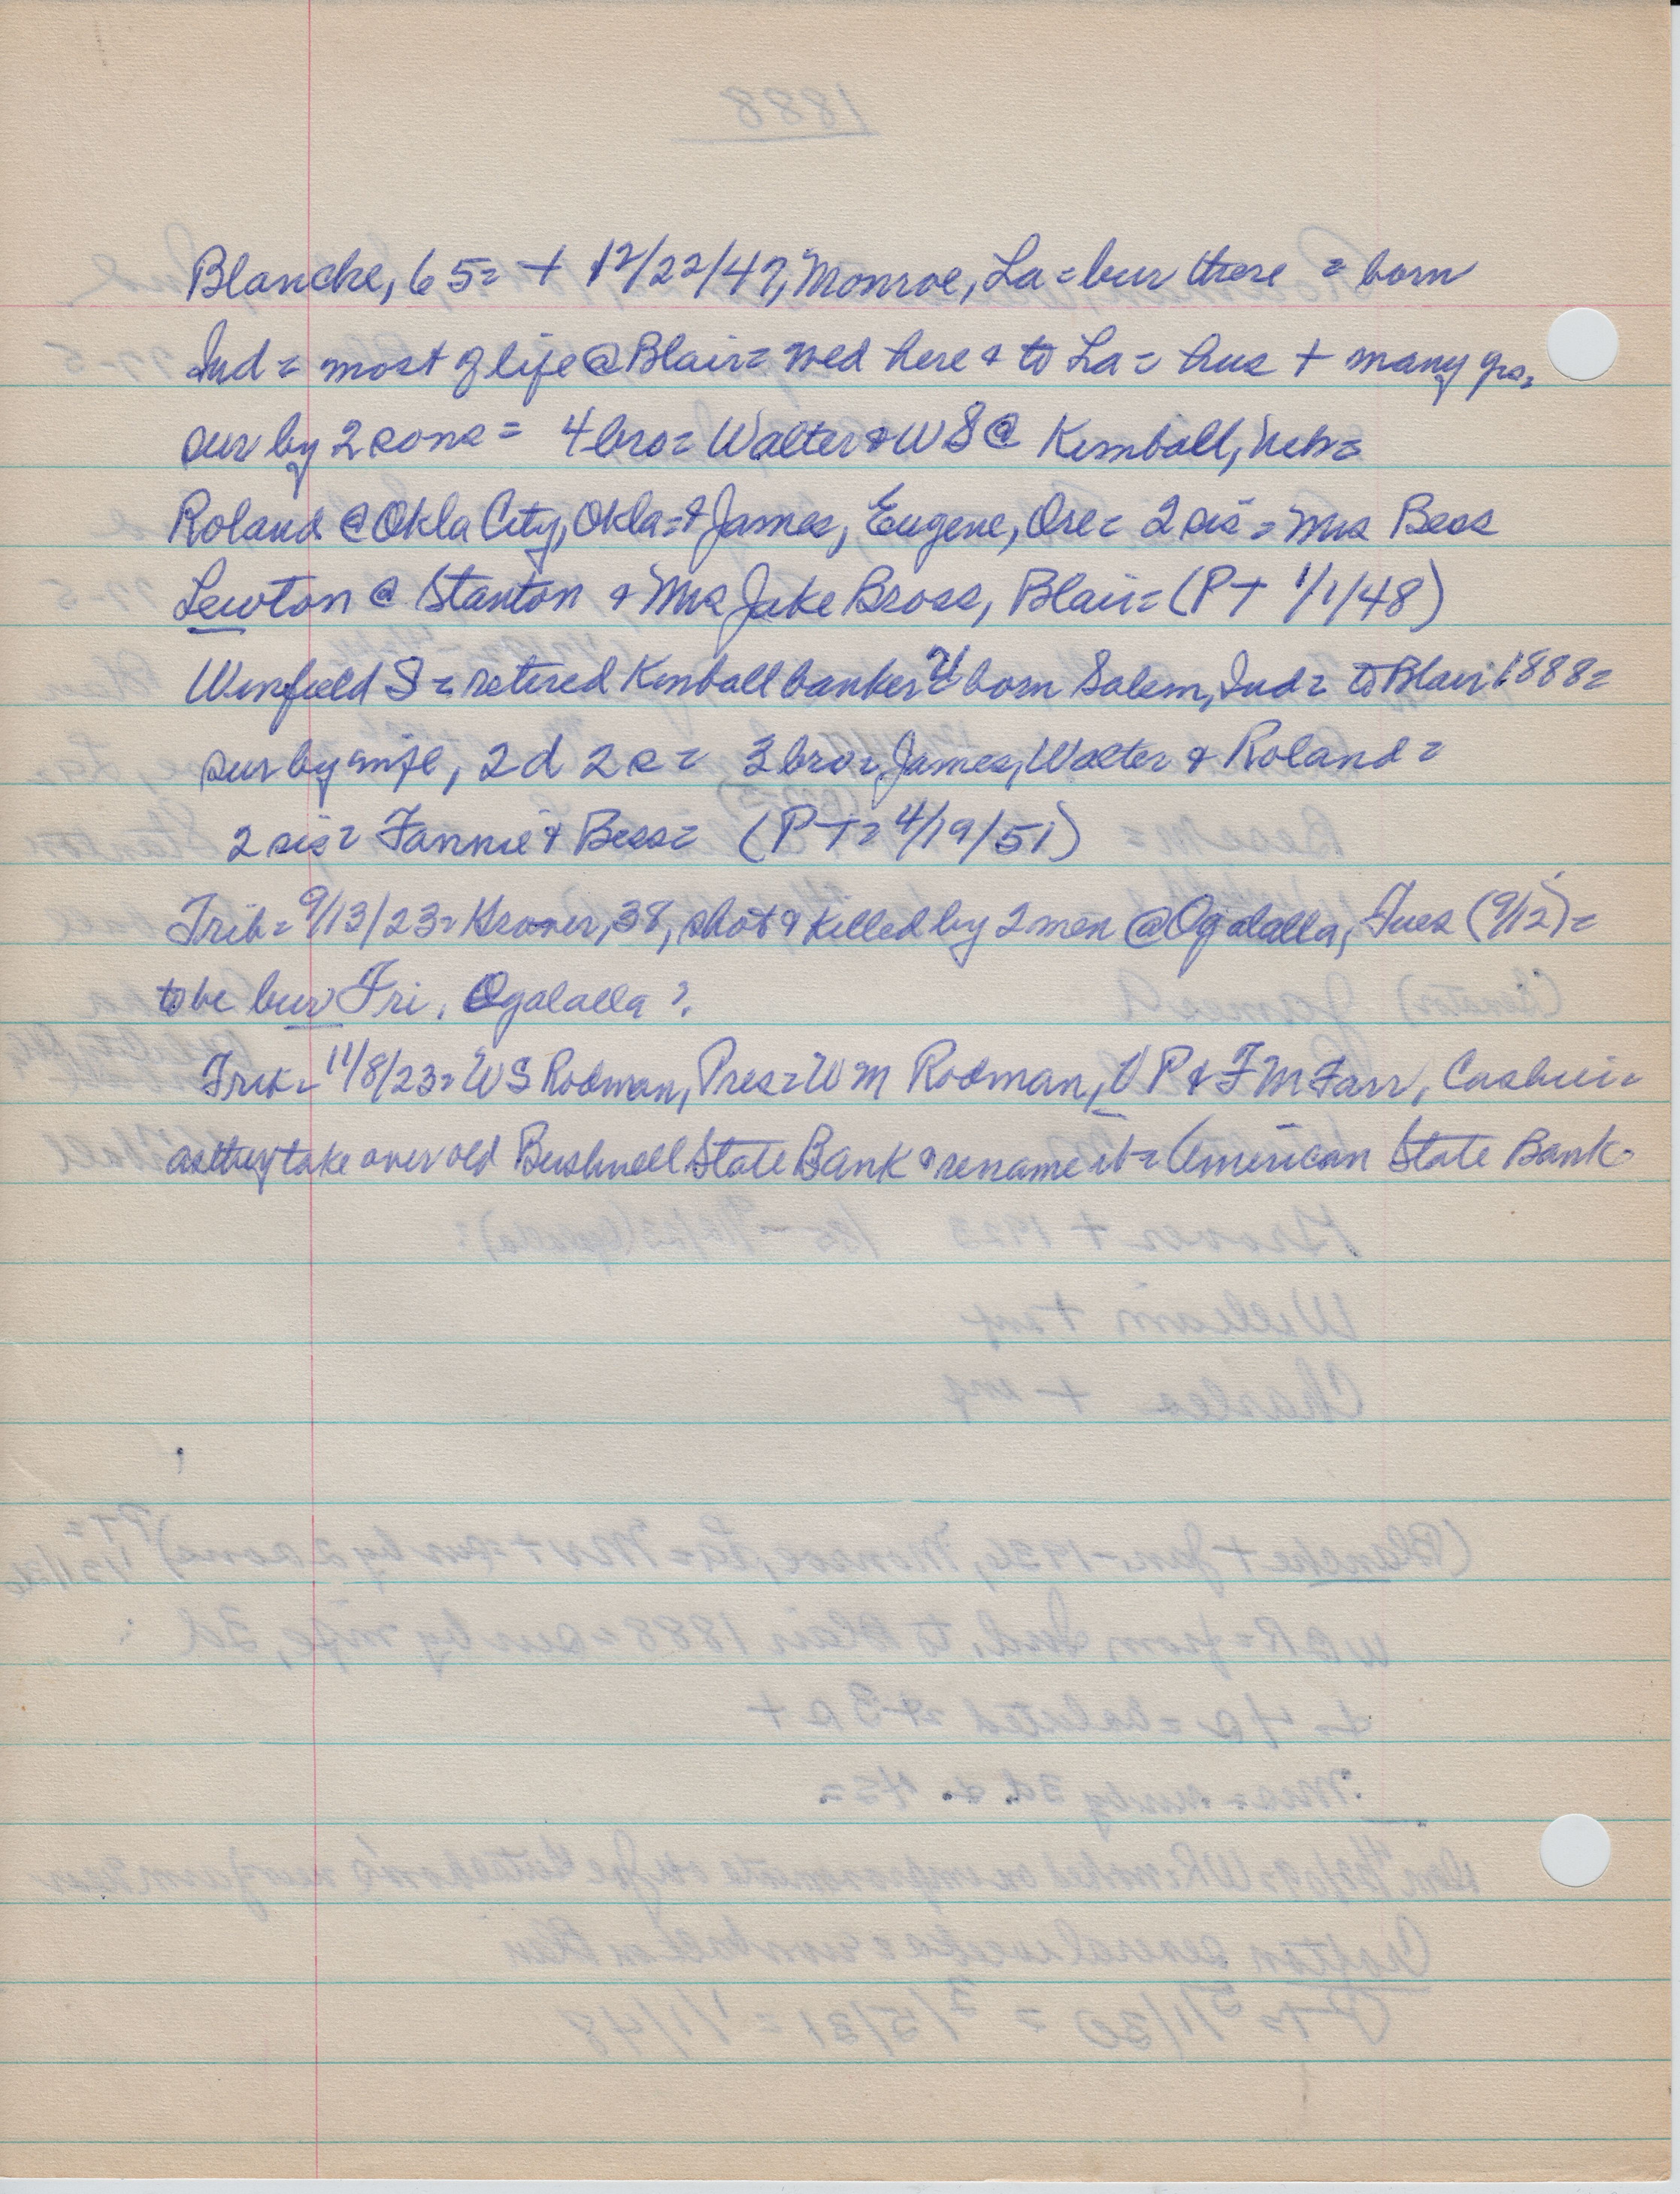 Blanche, 65 = + 12/22/47, Monroe, La = bur there = born
Ind = most of life @ Blair = wed here & to La = hus + many yrs.
sur by 2 sons = 4 bro = Walter & W S @ Kimball, Neb =
Roland @ Okla City, Okla = & James, Eugene, Ore = 2 sis = Mrs Bess
Lewton @ Stanton & Mrs Jake Bross, Blair = (PT 1/1/48)
Winfield S = retired Kimball banker = born Salem, Ind = to Blair 1888 =
sur by wife, 2 d 2 s = 3 bro = James, Walter & Roland =
2 sis = Fannie & Bess = (PT = 4/19/51)
Trib = 9/13/23 = Grover, 38, shot & killed by 2 men @ Ogalalla, Tues (9/12) =
to be bur Fri, Ogalalla ?
Trib = 11/8/23 = W S Rodman, Pres = W M Rodman, V P & F M Farr, Cashier =
as they take over old Bushnell State Bank & rename it = American State Bank.